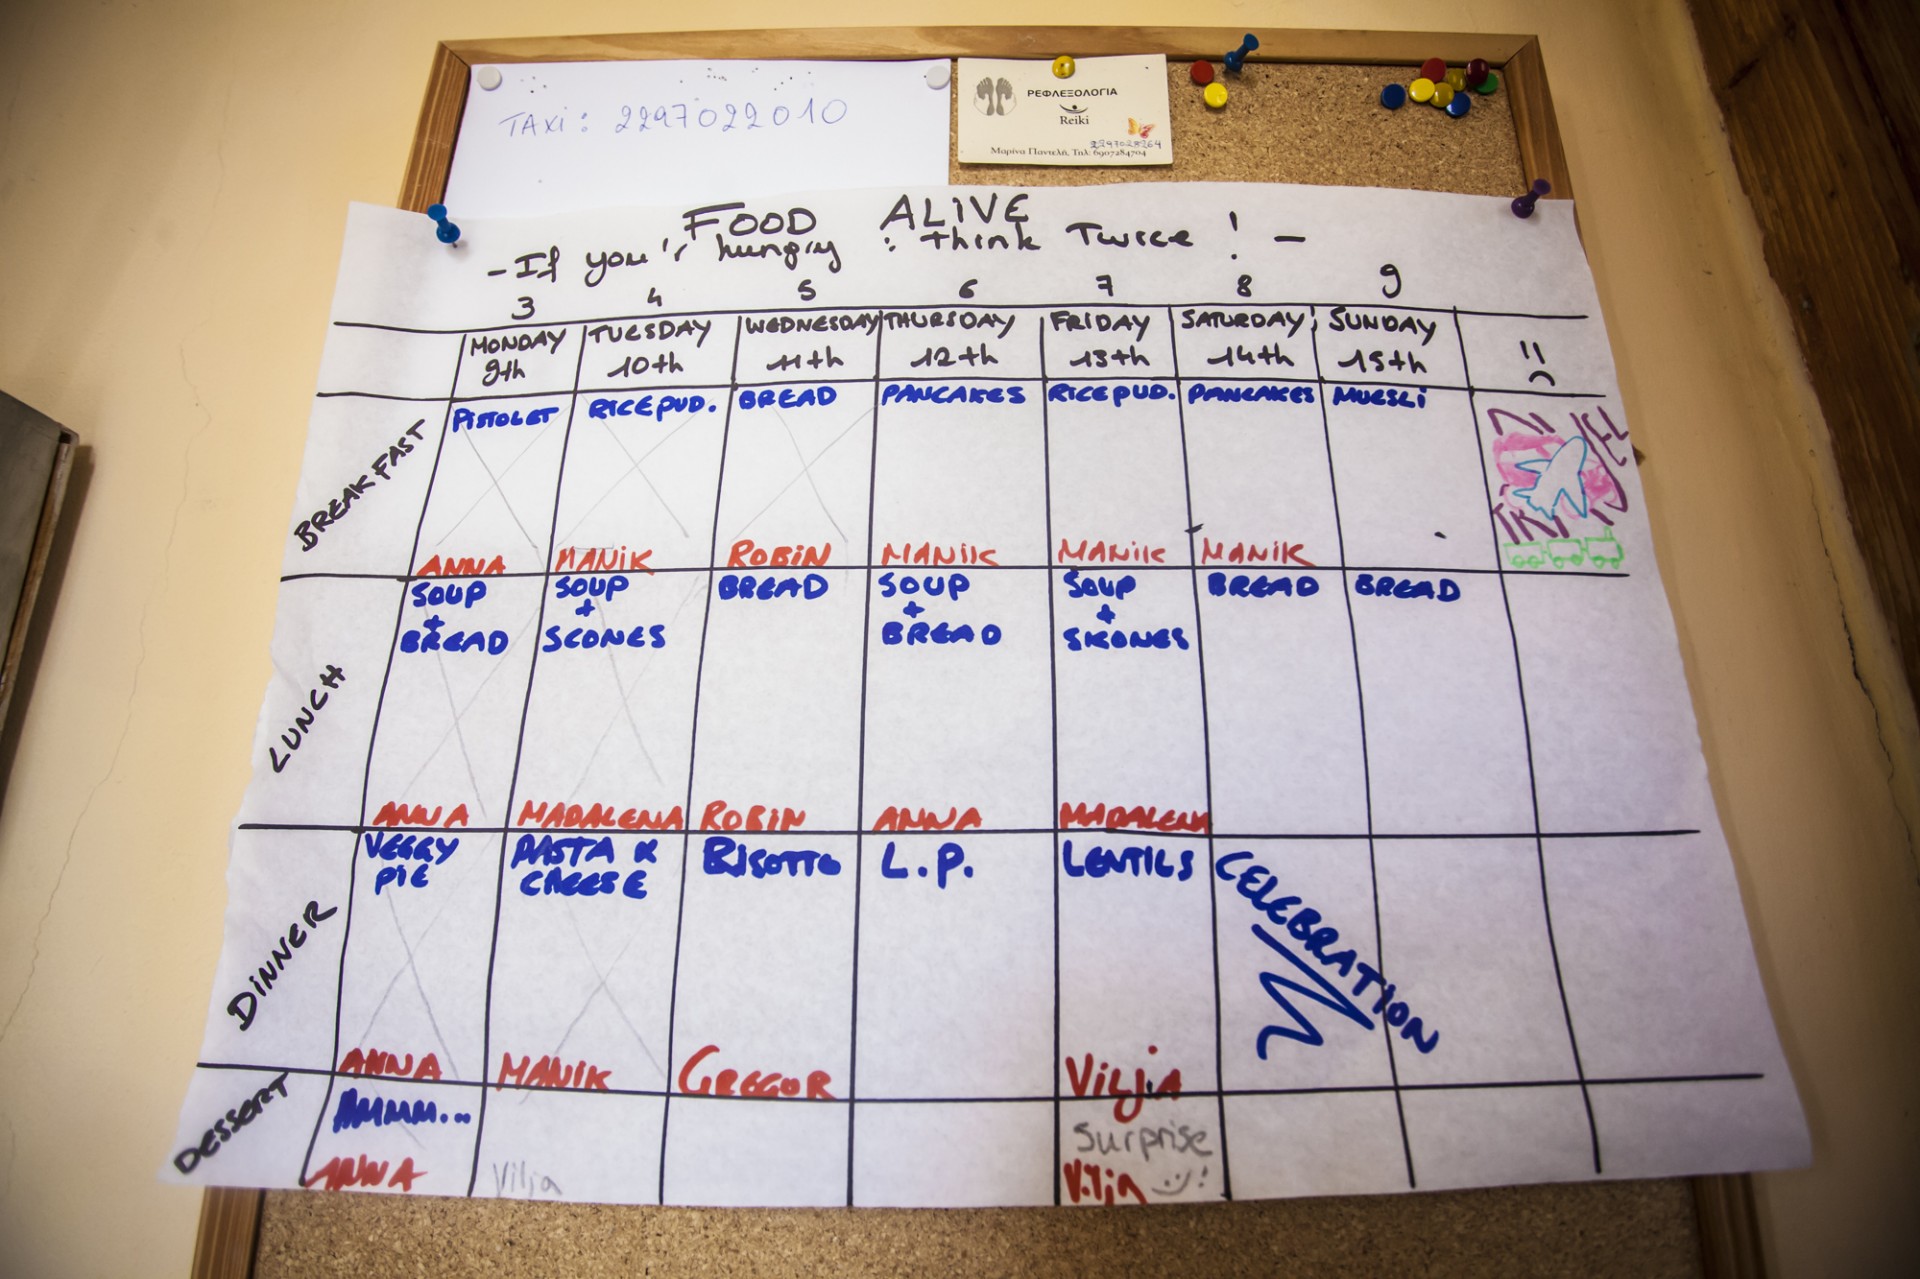 TAXi: 2297022010
ΡΕΦΛΕΞΟΛΟΓΙΑ
Reiki
2297028264
Μαρίνα Παντελή, Τηλ: 6907284704
FOOD ALiVE
- If you'r hungry : think Twice ! -
3 4 5 6 7 8 9
MONDAY TUESDAY WEDNESDAY THURSDAY FRIDAY SATURDAY SUNDAY
9th 10th 11th 12th 13th 14th 15th
BREAKFAST
PISTOLET RICEPUD. BREAD PANCAKES RICEPUD. PANCAKES MUESLI
ANNA MANiK ROBiN MANiK MANiK MANiK
LUNCH
SOUP + BREAD
SOUP + SCONES
BREAD
SOUP + BREAD
SOUP + SKONES
BREAD
BREAD
ANNA MADALENA ROBiN ANNA MADALENA
DiNNER
VEGGY PIE
PASTA & CHEESE
RISOTTO
L.P.
LENTILS
CELEBRATiON
ANNA MANIK GREGOR ViLjA
DESSERT
MMMM...
Surprise
ANNA Vilja Vilja !